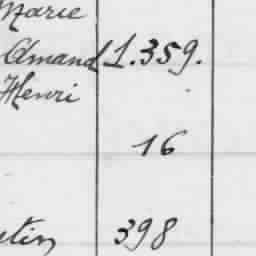 Marie
Amand 1.359.
Henri
16
398